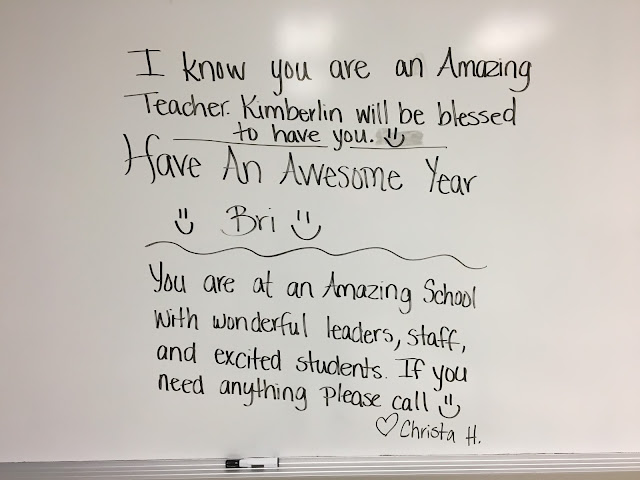 I know you are an Amazing
Teacher. Kimberlin will be blessed
to have you.
Have An Awesome Year
Bri
You are at an Amazing School
with wonderful leaders, staff,
and excited students. If you
need anything please call
Christa H.